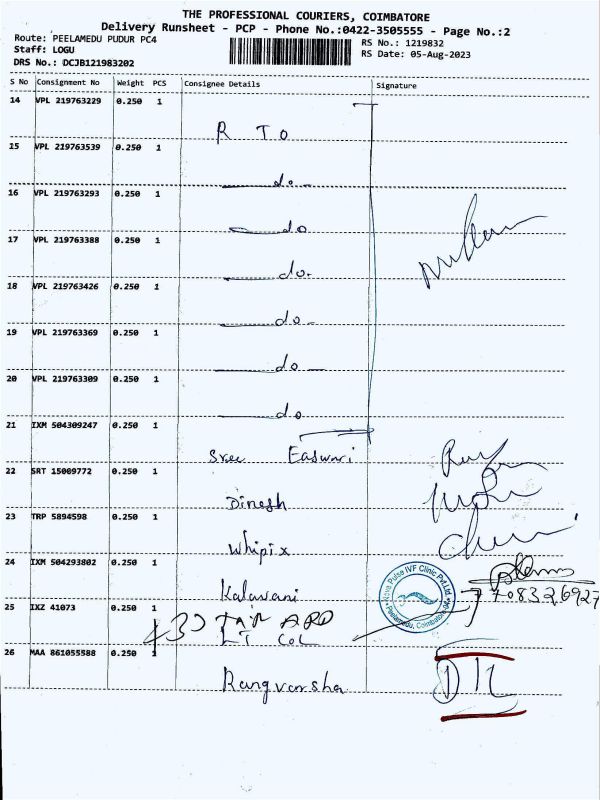 THE PROFESSIONAL COURIERS, COIMBATORE
Delivery Runsheet - PCP - Phone No.:0422-3505555 - Page No.:2
Route: PEELAMEDU PUDUR PC4
RS No.: 1219832
Staff: LOGU
RS Date: 05-Aug-2023
DRS No.: DCJB121983202
S No Consignment No Weight PCS Consignee Details Signature
14 VPL 219763229 0.250 1
R T O
15 VPL 219763539 0.250 1
do
16 VPL 219763293 0.250 1
do
17 VPL 219763388 0.250 1
do.
18 VPL 219763426 0.250 1
do
19 VPL 219763369 0.250 1
do
20 VPL 219763309 0.250 1
do
21 IXM 504309247 0.250 1
Sree Easwari
22 SRT 15009772 0.250 1
Dinesh
23 TRP 5894598 0.250 1
Whipix
24 IXM 504293802 0.250 1
Kalavani
Nova Pulse IVF Clinic Pvt.Ltd
Peelamedu, Coimbatore
7708326927
25 IXZ 41073 0.250 1
LT COL
26 MAA 861055588 0.250 1
Rangvarsha